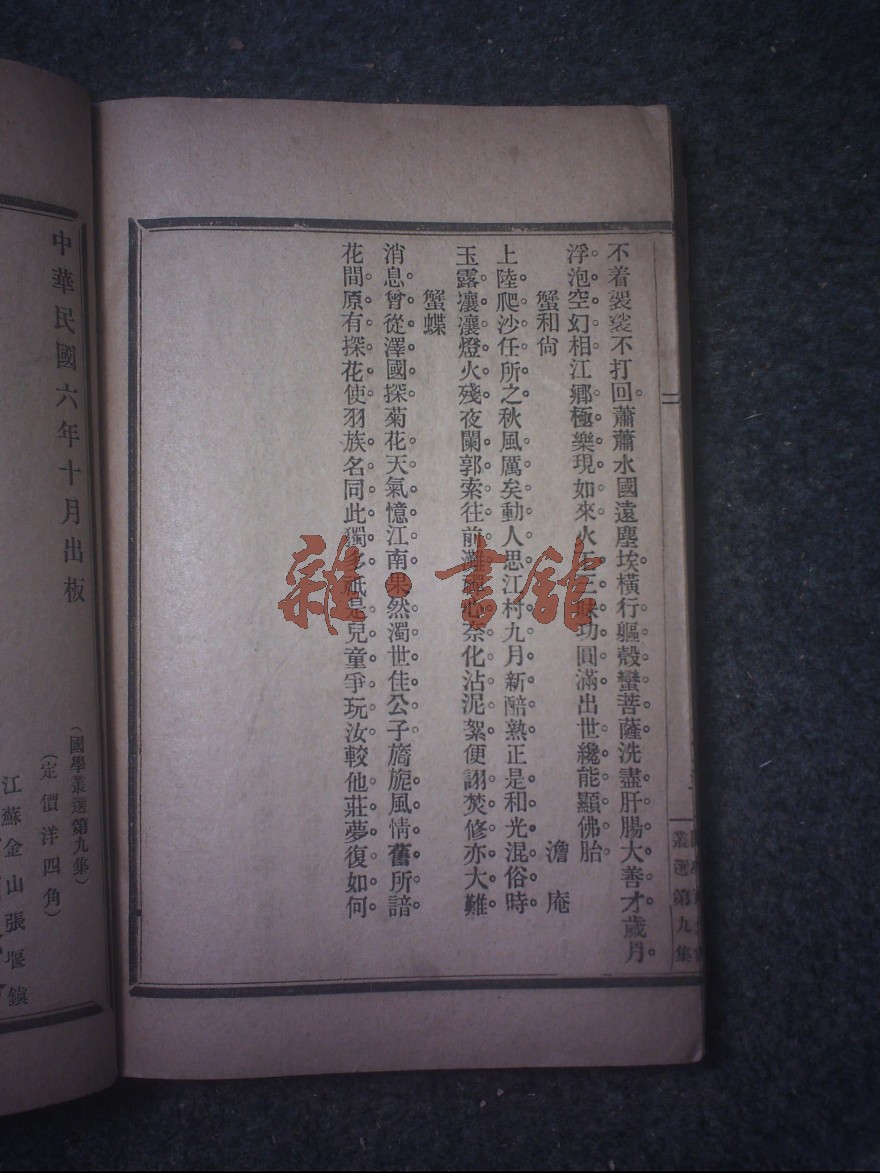 不着袈裟不打回。蕭蕭水國遠塵埃。橫行軀殼蠻菩薩。洗盡肝腸大善才。歲月
浮泡空幻相。江鄉極樂現如來。火 三昧功圓滿。出世纔能顯佛胎。
蟹和尙 澹庵
上陸爬沙任所之。秋風厲矣動人思。江村九月新醅熟。正是和光混俗時。
玉露瀼瀼燈火殘。夜闌郭索往前灘。 心奈化沾泥絮。便詡焚修亦大難。
蟹蝶
消息曾從澤國探。菊花天氣憶江南。果然濁世佳公子。旖旎風情舊所諳。
花間原有探花使。羽族名同此獨 。祇是兒童爭玩汝。較他莊夢復如何。
二
叢選第九集
中華民國六年十月出板
（國學叢選第九集）
（定價洋四角）
江蘇金山張堰鎮
雜·書舘